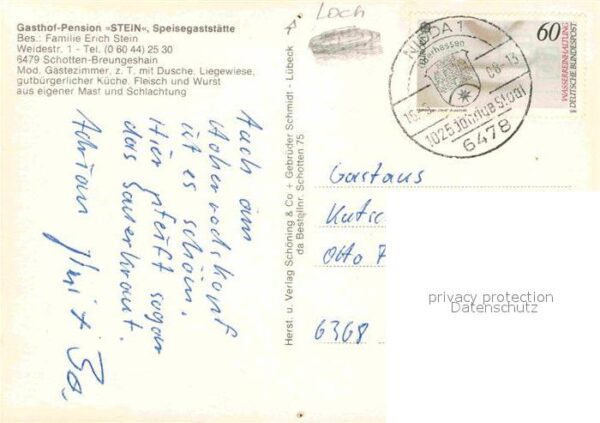 Gasthof-Pension »STEIN«, Speisegaststätte
Bes.: Familie Erich Stein
Weidestr. 1 - Tel. (0 60 44) 25 30
6479 Schotten-Breungeshain
Mod. Gästezimmer, z. T. mit Dusche, Liegewiese,
gutbürgerlicher Küche. Fleisch und Wurst
aus eigener Mast und Schlachtung
Auch am
Hoherodskopf
ist es schön.
Hier pfeift sogar
das Sauerkraut.
Herst. u. Verlag Schöning & Co + Gebrüder Schmidt - Lübeck
da Bestellnr. Schotten 75
Loch
NIDDA 1
1025 Jahrige Stadt
6478
60
WASSERREINHALTUNG
DEUTSCHE BUNDESPOST
Gasthaus
Otto
6368
privacy protection
Datenschutz